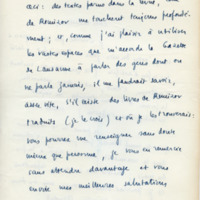 ceci : des textes parus dans la revue, ceux
de Rouvizov me touchent toujours profondé-
ment ; et, comme j'ai plaisir à utiliser
les vastes espaces que m'accorde la Gazette
de Lausanne à parler des gens dont on
ne parle jamais, il me faudrait savoir,
assez vite, s'il existe des livres de
traduits (je le crois) et où je les trouverais.
vous pourriez me renseigner sans doute
mieux que personne, je vous en remercie
sans attendre davantage et vous
envoie mes meilleures salutations